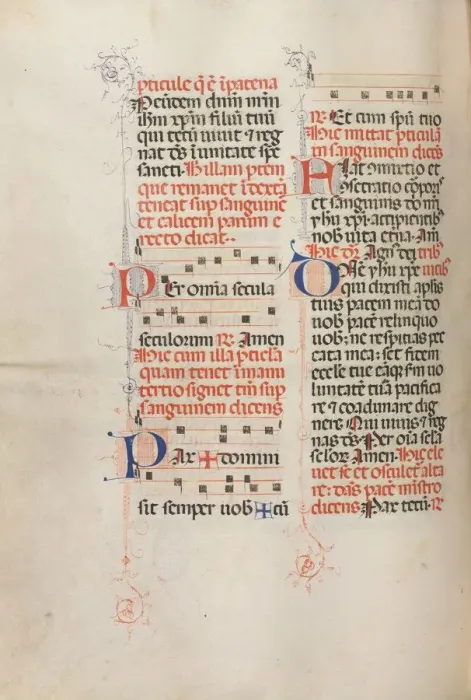 pticule q̄ ē ī patena
P eūdem dn̄m nr̄m
ihm xp̄m filiū tuū
qui tecū uiuit ⁊ reg
nat ds̄ ī unitate sp̄s
sancti. Hillam ptem
que remanet ī dextra
teneat sup sanguinem
et calicem parum e
recto dicat.
PEr om̄ia secula
seculorum ℟. Amen
Hic cum illa pticla
quam tenet ī manu
tertio signet tm̄ sup
sanguinem dicens
PAx ✠ domini
sit semper uob ✠ cū
℟. Et cum spū tuo
Hic mittat pticulā
in sanguinem dicēs
HEc 9mixtio et
9secratio corpor
et sanguinis dn̄i nr̄i
yhū xp̄i accipientib
nob uita etn̄a. Am̄
Hic dr̄. Agn̄ dei tribꝰ
DNē yhū xp̄e uicibꝰ
qui dixisti aplis
tuis pacem meā do
uob pacē relinquo
uob: ne respicias pec
cata mea: set fidem
eccl̄e tue eāq; s̄m uo
luntatē tuā pacifica
re ⁊ coadunare dig
neris. Qui uiuis ⁊ reg
nas ds̄. Per oīa sc̄la
sc̄lor. Amen. Hic ele
uet se et osculet alta
re: dās pacē mīstro
dicens. Pax tecū. ℟